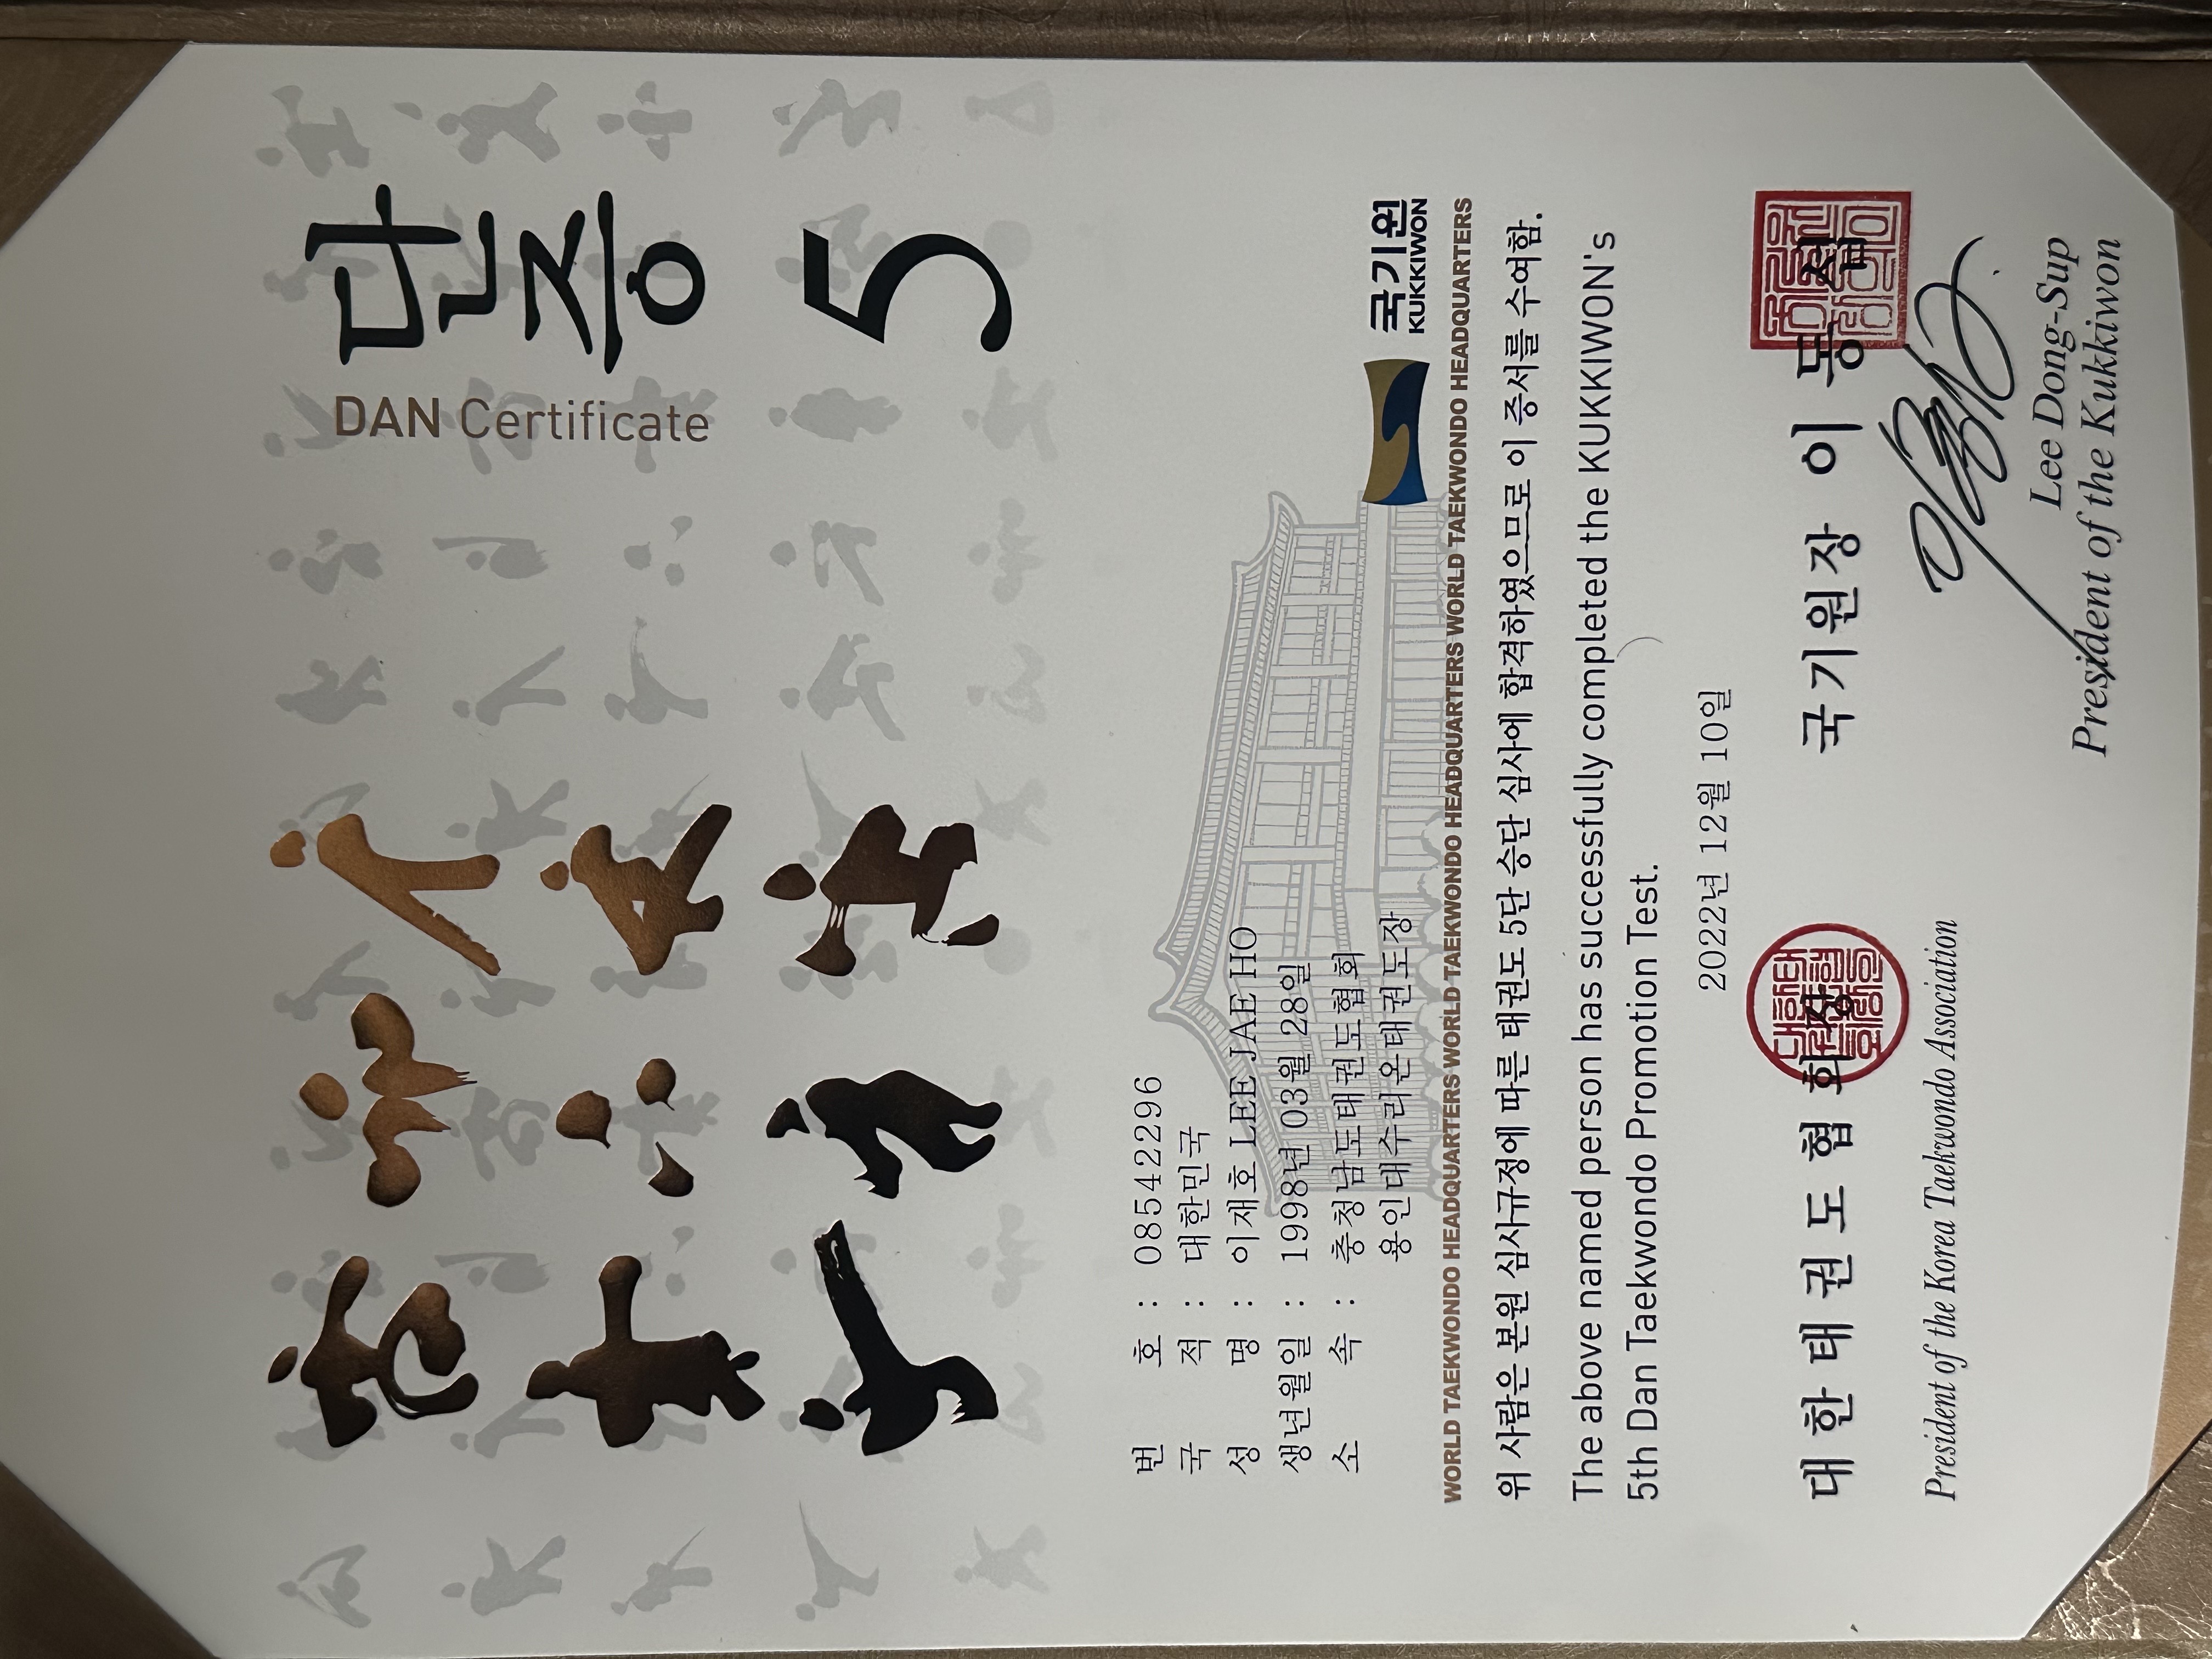 단증
DAN Certificate
5
번 호 : 08542296
국 적 : 대한민국
성 명 : 이재호 LEE JAE HO
생년월일 : 1998년 03월 28일
소 속 : 충청남도태권도협회
용인대수라온태권도장
국기원
KUKKIWON
WORLD TAEKWONDO HEADQUARTERS WORLD TAEKWONDO HEADQUARTERS WORLD TAEKWONDO HEADQUARTERS WORLD TAEKWONDO HEADQUARTERS
위 사람은 본원 심사규정에 따른 태권도 5단 승단 심사에 합격하였으므로 이 증서를 수여함.
The above named person has successfully completed the KUKKIWON's
5th Dan Taekwondo Promotion Test.
2022년 12월 10일
대한태권도협회장
President of the Korea Taekwondo Association
국기원장 이동섭
Lee Dong-Sup
President of the Kukkiwon